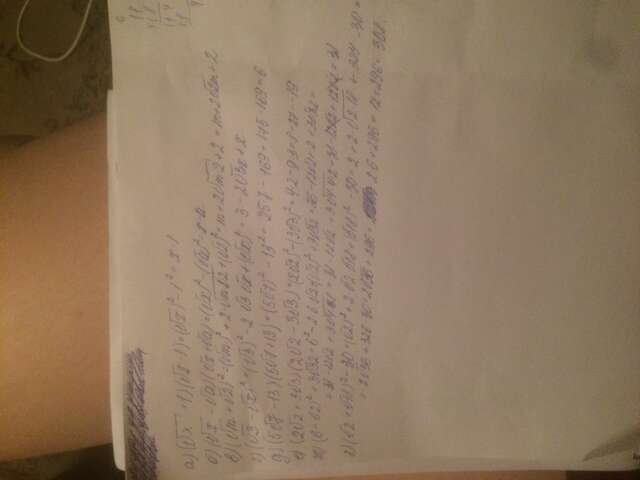 а) (√x + 1)(√x - 1) = (√x)² - 1² = x - 1
б) (√x - √a)(√x + √a) = (√x)² - (√a)² = x - a
в) (√m + √2)² = (√m)² + 2·√m√2 + (√2)² = m + 2√m2 + 2 = m + 2√2m + 2
г) (√3 - √x)² = (√3)² - 2√3√x + (√x)² = 3 - 2√3x + x
д) (5√7 - 13)(5√7 + 13) = (5√7)² - 13² = 25·7 - 169 = 175 - 169 = 6
е) (2√2 + 3√3)(2√2 - 3√3) = (2√2)² - (3√3)² = 4·2 - 9·3 = 8 - 27 = -19
ж) (6 - √2)² + 3√32 = 6² - 2·6√2 + (√2)² + 3√32 = 36 - 12√2 + 2 + 3√32 =
з) (√2 + √18)² - 30 = (√2)² + 2√2·√18 + (√18)² - 30 = 2 + 2·√2·18 + 324 - 30 =
= 2√36 + 326 - 30 = 2√36 + 296 = 2·6 + 296 = 12 + 296 = 308